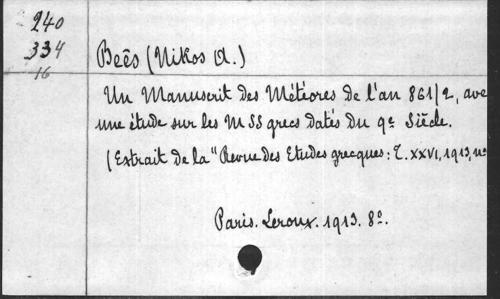 240
334
16
Beês (Nikos A.)
Un Manuscrit des Météores de l'an 861/2, ave
une étude sur les MSS grecs datés du 9e Siècle.
(Extrait de la "Revue des Etudes grecques: T. XXVI, 1913, no
Paris. Leroux. 1913. 8o.